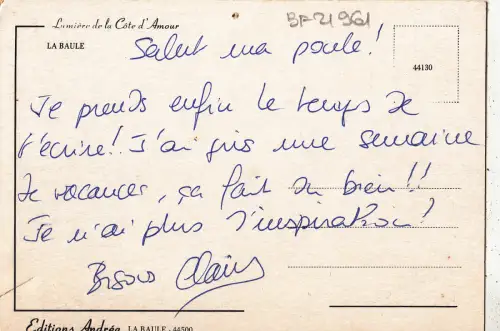 Lumière de la Côte d'Amour
BF-21961
LA BAULE
Salut ma poule!
44130
Je prends enfin le temps de
t'écrire! J'ai pris une semaine
de vacances, ça fait du bien!!
Je n'ai plus d'inspiration!
Bisous
Editions Andréa LA BAULE - 44500